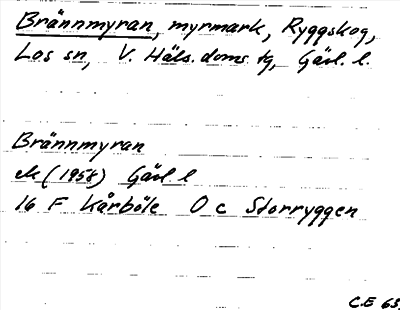 Brännmyran, myrmark, Ryggskog,
Los sn, V. Häls. doms. tg, Gävl. l.
Brännmyran
ek (1958) Gävl. l
16 F Kårböle O c Storryggen
C.E 65.